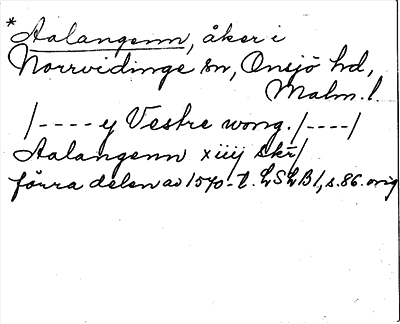 * Aalangenn, åker i
Norrvidinge sn, Onsjö hd,
Malm.l.
/----y Vestre wong./----/
Aalangenn xiiij skr/
förra delen av 1540-t. LSLB 1, s. 86. orig